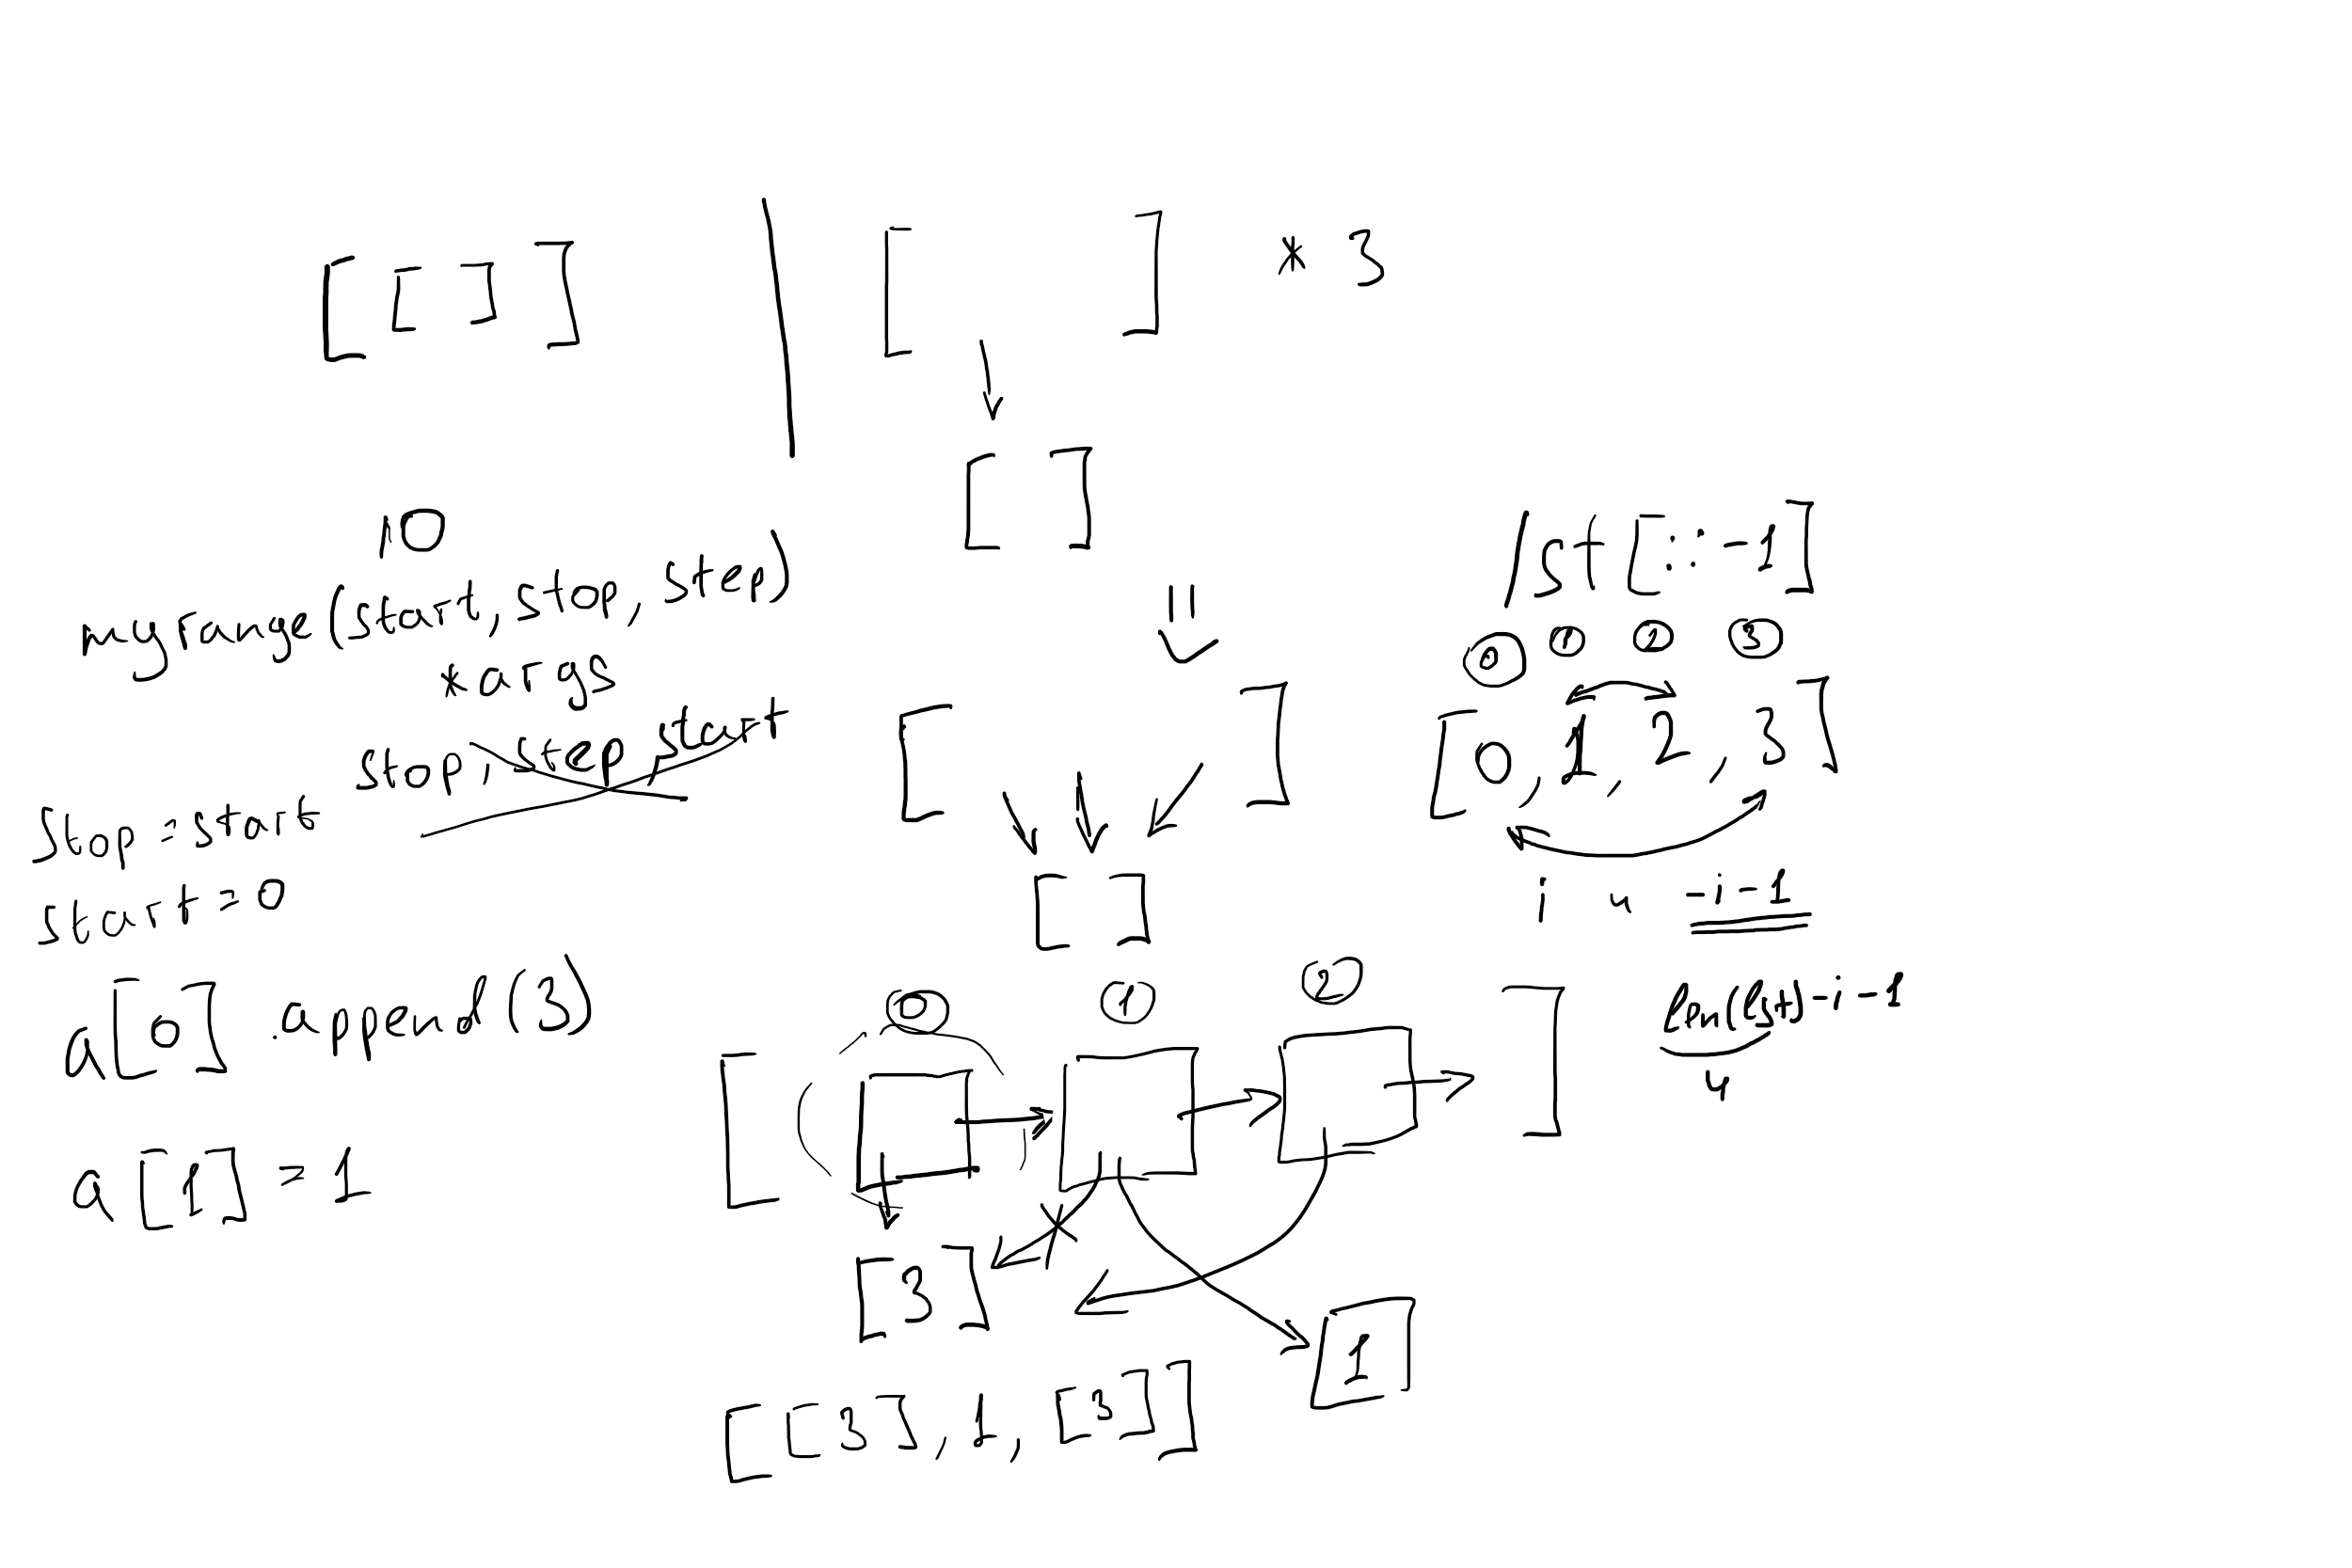 [ [ ] ]
[ ] * 3
[ ]
10
myrange (start, stop, step)
*args
stop, step, start
stop = start
start = 0
a[0] .append(3)
a[1] = 1
[ ]
[ ]
lst[::-1]
0 1 2 3
[0, 1, 2, 3]
i и -i-1
len(lst)-i-1
4
0 1 2
[ ]
[3]
1
[[3], 1, [3]]